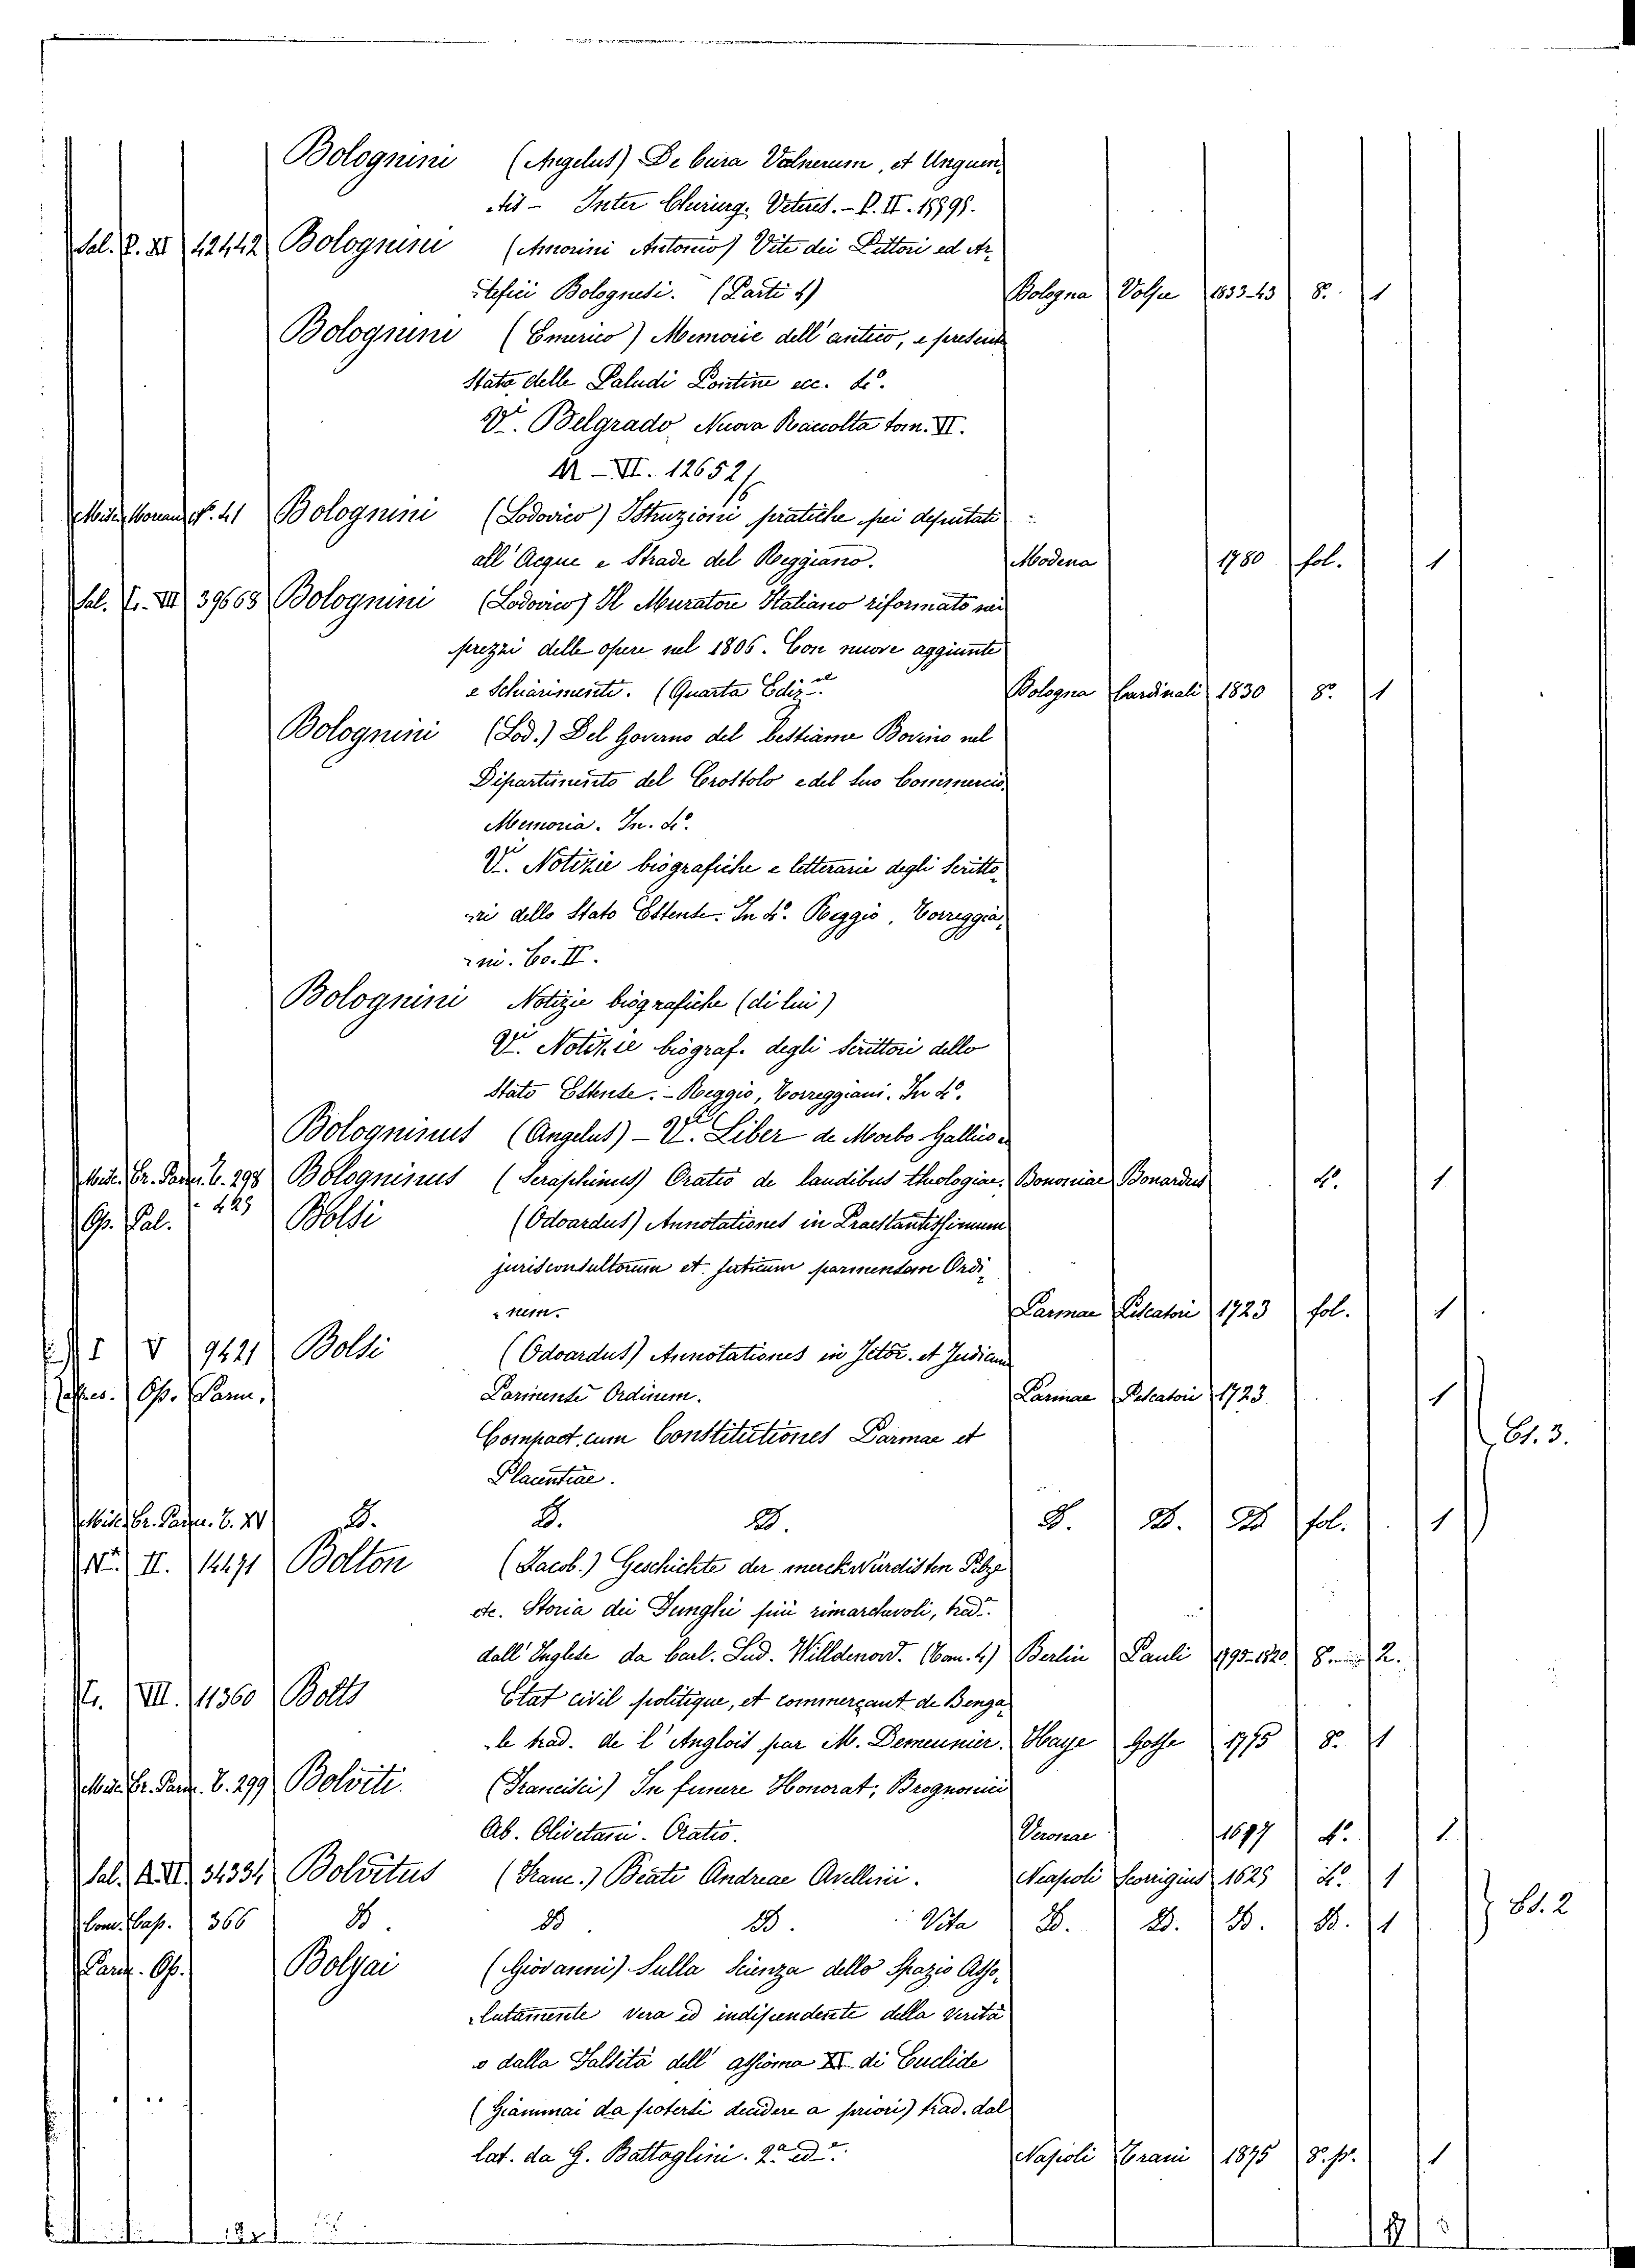 Bolognini (Angelus) De Cura Vulnerum, et Unguen-
-tis - Inter Chirurg. Veteres. - P. II.
Sal. P. XI 42442 Bolognini (Amorini Antonio) Vite dei Pittori ed Ar-
-tefici Bolognesi. (Parti 4) Bologna Volpe 1833-43 8.º 1
Bolognini (Emerico) Memorie dell' antico, e presente
Stato delle Paludi Pontine ecc. 4.º
V. Belgrado, Nuova Raccolta tom. VI.
VI. 12652
Misc. N.º 41 Bolognini (Lodovico) Istruzioni pratiche pei deputati
all' Acque e Strade del Reggiano. Modena 1780 fol. 1
Sal. VII 39663 Bolognini (Lodovico) Il Muratore Italiano riformato nei
prezzi delle opere nel 1806. Con nuove aggiunte
e Schiarimenti. (Quarta Ediz.ne Bologna Cardinali 1830 8.º 1
Bolognini (Lod.) Del Governo del bestiame Bovino nel
Dipartimento del Crostolo e del suo Commercio.
Memoria. In 4.º
V. Notizie biografiche e letterarie degli Scritto-
-ri dello Stato Estense. In 4.º Reggio, Correggia-
-ni. To. II.
Bolognini Notizie biografiche (di lui)
V. Notizie biograf. degli Scrittori dello
Stato Estense. - Reggio, Correggiani. In 4.º
Bologninus (Angelus) - V. Liber de Morbo Gallico
Misc. Er. Parm. T. 298 Bologninus (Seraphinus) Oratio de laudibus theologiae. Bononiae Bonardus 4.º 1
Op. Pal. 425 Bolsi (Odoardus) Annotationes in Praestantissimum
jurisconsultorum et Parmensem Ordi-
-nem. Parmae Piscatori 1723 fol. 1
I V 9421 Bolsi (Odoardus) Annotationes in Jctor. et Judicum
Op. Parm. Parmense Ordinem. Parmae Piscatori 1723 1
Compact. cum Constitutiones Parmae et Es. 3.
Placentiae.
Misc. Er. Parm. T. XV D. D. D. D. D. D. fol. 1
II. 14471 Bolton (Jacob.) Geschichte der merckwürdisten Pilze
etc. Storia dei Funghi più rimarchevoli, trad.
dall' Inglese da Carl. Lud. Willdenow. (Tom. 4) Berlin Pauli 1795-1820 8. 2.
VII. 11360 Bolts Etat civil politique, et commerçant de Benga-
-le trad. de l' Anglois par M. Demeunier. Haye Gosse 1775 8.º 1
Misc. Er. Parm. T. 299 Bolviti (Francisci) In funere Honorat. Brognonici
Ab. Olivetani. Oratio. Veronae 1697 4.º 1
Sal. 34334 Bolvitus (Franc.) Beati Andreae Avellini. Neapoli Scorigius 1625 4.º 1
Com. Cap. 366 D. D. D. Vita D. D. D. D. 1 Es. 2
Parm. Op. Bolyai (Giovanni) Sulla Scienza dello Spazio Asso-
-lutamente vera ed indipendente della verità
o dalla Falsità dell' assioma XI. di Euclide
(Giammai da potersi decidere a priori) trad. dal
lat. da G. Battaglini. 2.a ed.ne Napoli Trani 1875 8.º p. 1